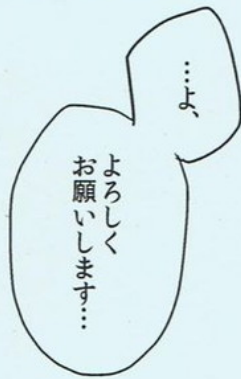 …よ、
よろしく
お願いします…